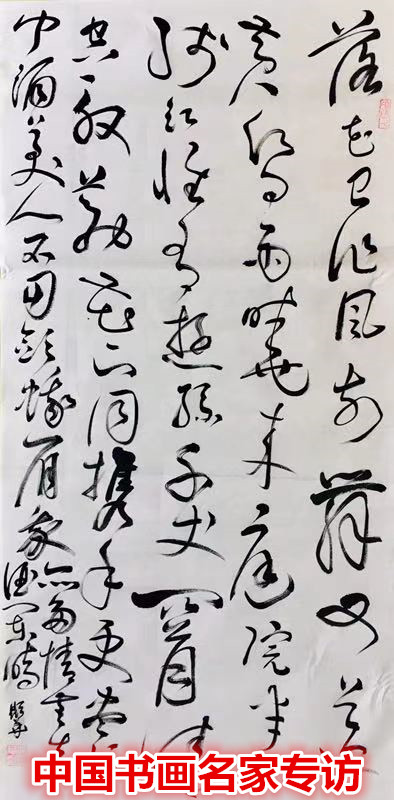 落花已作風前舞又送
黄昏雨曉来庭院半
残红惟有游絲千丈罥晴
空殷勤花下同携手更尽杯
中酒美人不用敛蛾眉我亦多情无奈
酒阑时
中国书画名家专访